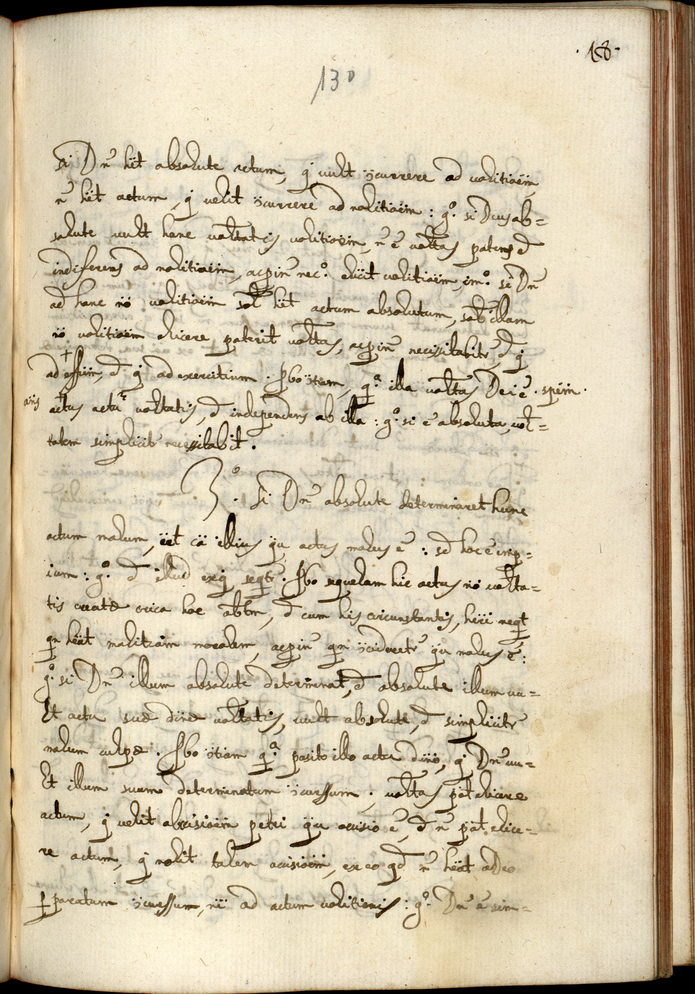 ·18·
130
si Dn̄ hēt absolute actum, q̄ vult ↄcurrere ad volitioēm,
n̄ hēt actum, q̄ velit ↄcurrere ad nolitioēm : gº. si Deus ab=
solute vult hanc voltatis volitioēm, n̄ ē voltas potens et
indiferens ad nolitioēm, ac pin̄ necº. eliciit volitioēm, imº. si Dn̄
ad hanc nō volitioēm sol hēt actum absolutum, sol illam
nō volitioēm elicere poterit voltas, ac pin̄ necissitabitr, et q̄
ad exercitium . Pbo ↄtiam, qª. illa voltas Dei ē
spēm .
actus voltatis, et independens ab illa : gº. si ē absoluta, vol=
tatem simplicitr necessitabit .
3º. Si Dn̄ absolute determinaret hunc
actum malum, eēt cā illius qu actus malus ē : sed hoc ē imp=
ium : gº. et illud ex q̄ seqtr . Pbo sequelam hic actus nō volta=
tis creatæ circa hoc obtm, et cum his circunstantijs, hēri neqt
qn hēat malitiam moralem, ac pin̄ qn ↄcideretr qu malus ē :
gº. si Dn̄ illum absolute determinat, et absolute illum vu=
lt actu suæ divæ voltatis, vult absolute, et simplicitr
malum culpæ . Pbo ↄtiam qª. posito illo actu divo, q̄ Dn̄ vu=
lt illum suum determinatum ↄcurssum . voltas pōt elicere
actum, q̄ velit occisioēm petri qu occisio ē, et n̄ pōt elice=
re actum, q̄ nolit talem occisioēm, ex eo qd n̄ hēat a Deo
pparatum ↄcurssum, ni ad actum volitionis : gº. Dn̄ ē sim=